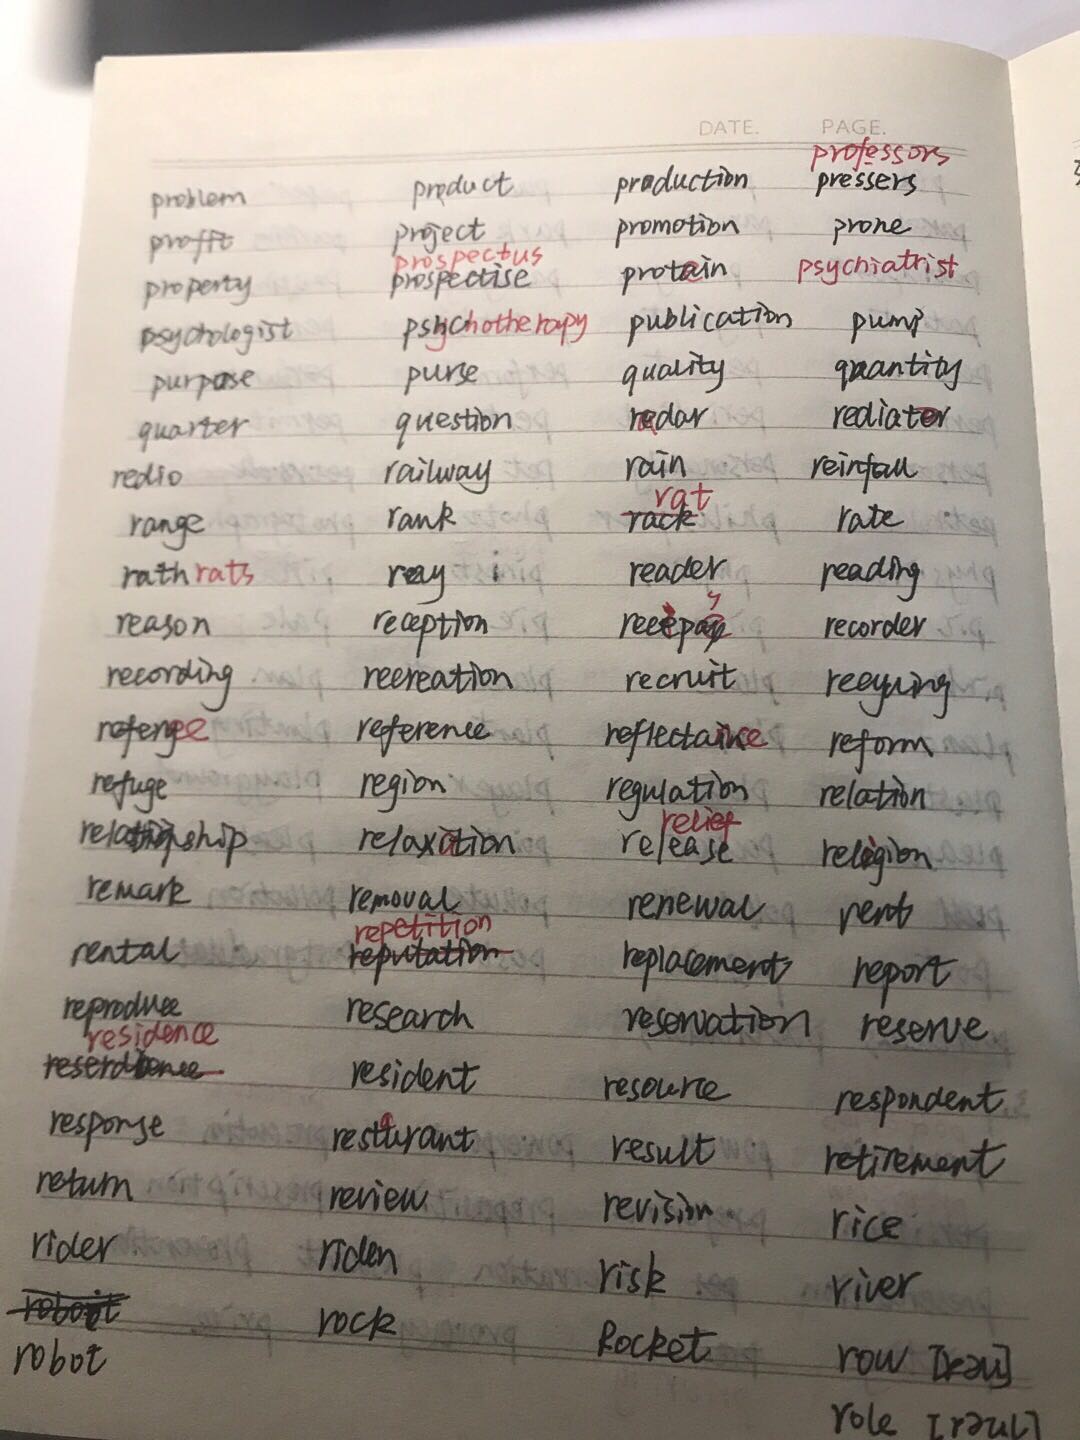 DATE. PAGE.
professors
problem product production pressers
profft project promotion prone
prospectus
property prospectise protein psychiatrist
psychologist psychotherapy publication pump
purpose purse quality quantity
quarter question radar rediator
redio railway rain reinfall
rat
range rank rack rate
rath rats ray reader reading
reason reception recorder
recording recreation recruit
reference reform
refuge region regulation relation
relief
relationship relaxation release religion
remark removal renewal rent
repetition
rental reputation replacement report
reproduce research reservation reserve
residence
resident resource respondent
response restaurant result retirement
return review revision rice
rider riden risk river
rock Rocket
robot row [rəu]
role [rəul]